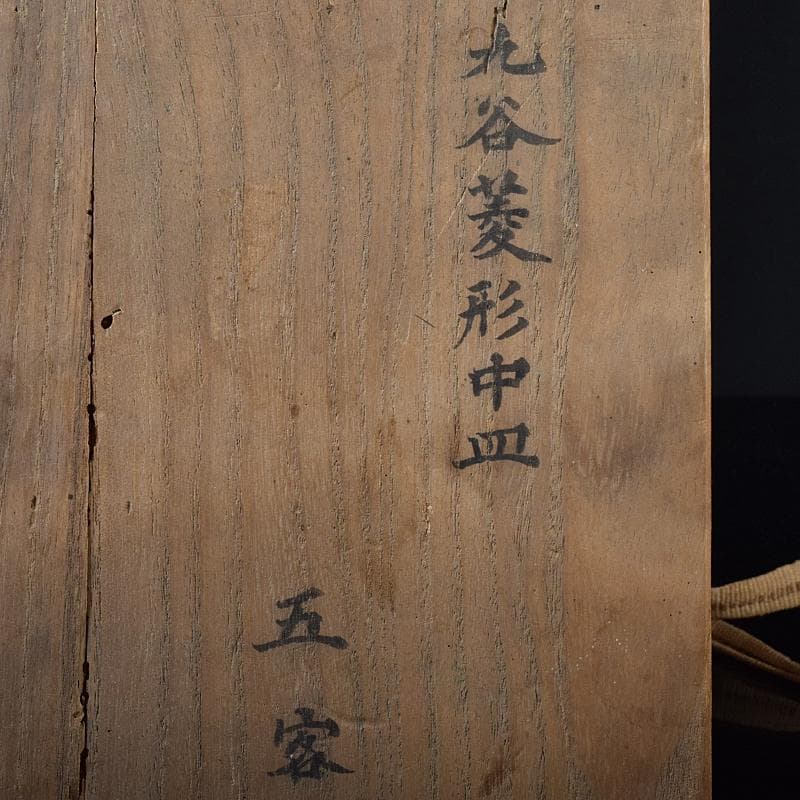 九谷菱形中皿
五客